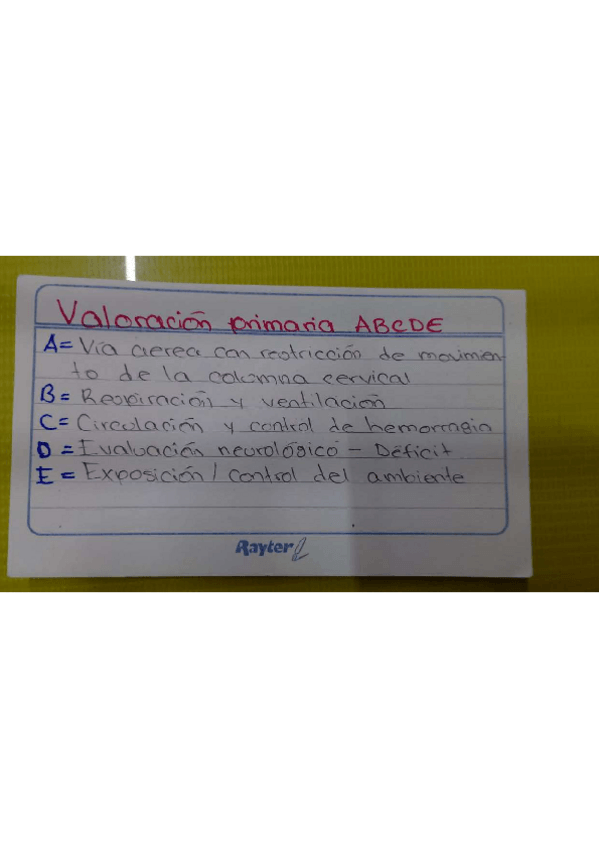 Valoración primaria ABCDE
A= Vía aerea con restricción de movimien-
to de la columna cervical
B= Respiración y ventilación
C= Circulación y control de hemorragia
D = Evaluación neurológico - Déficit
E = Exposición / control del ambiente
Rayter